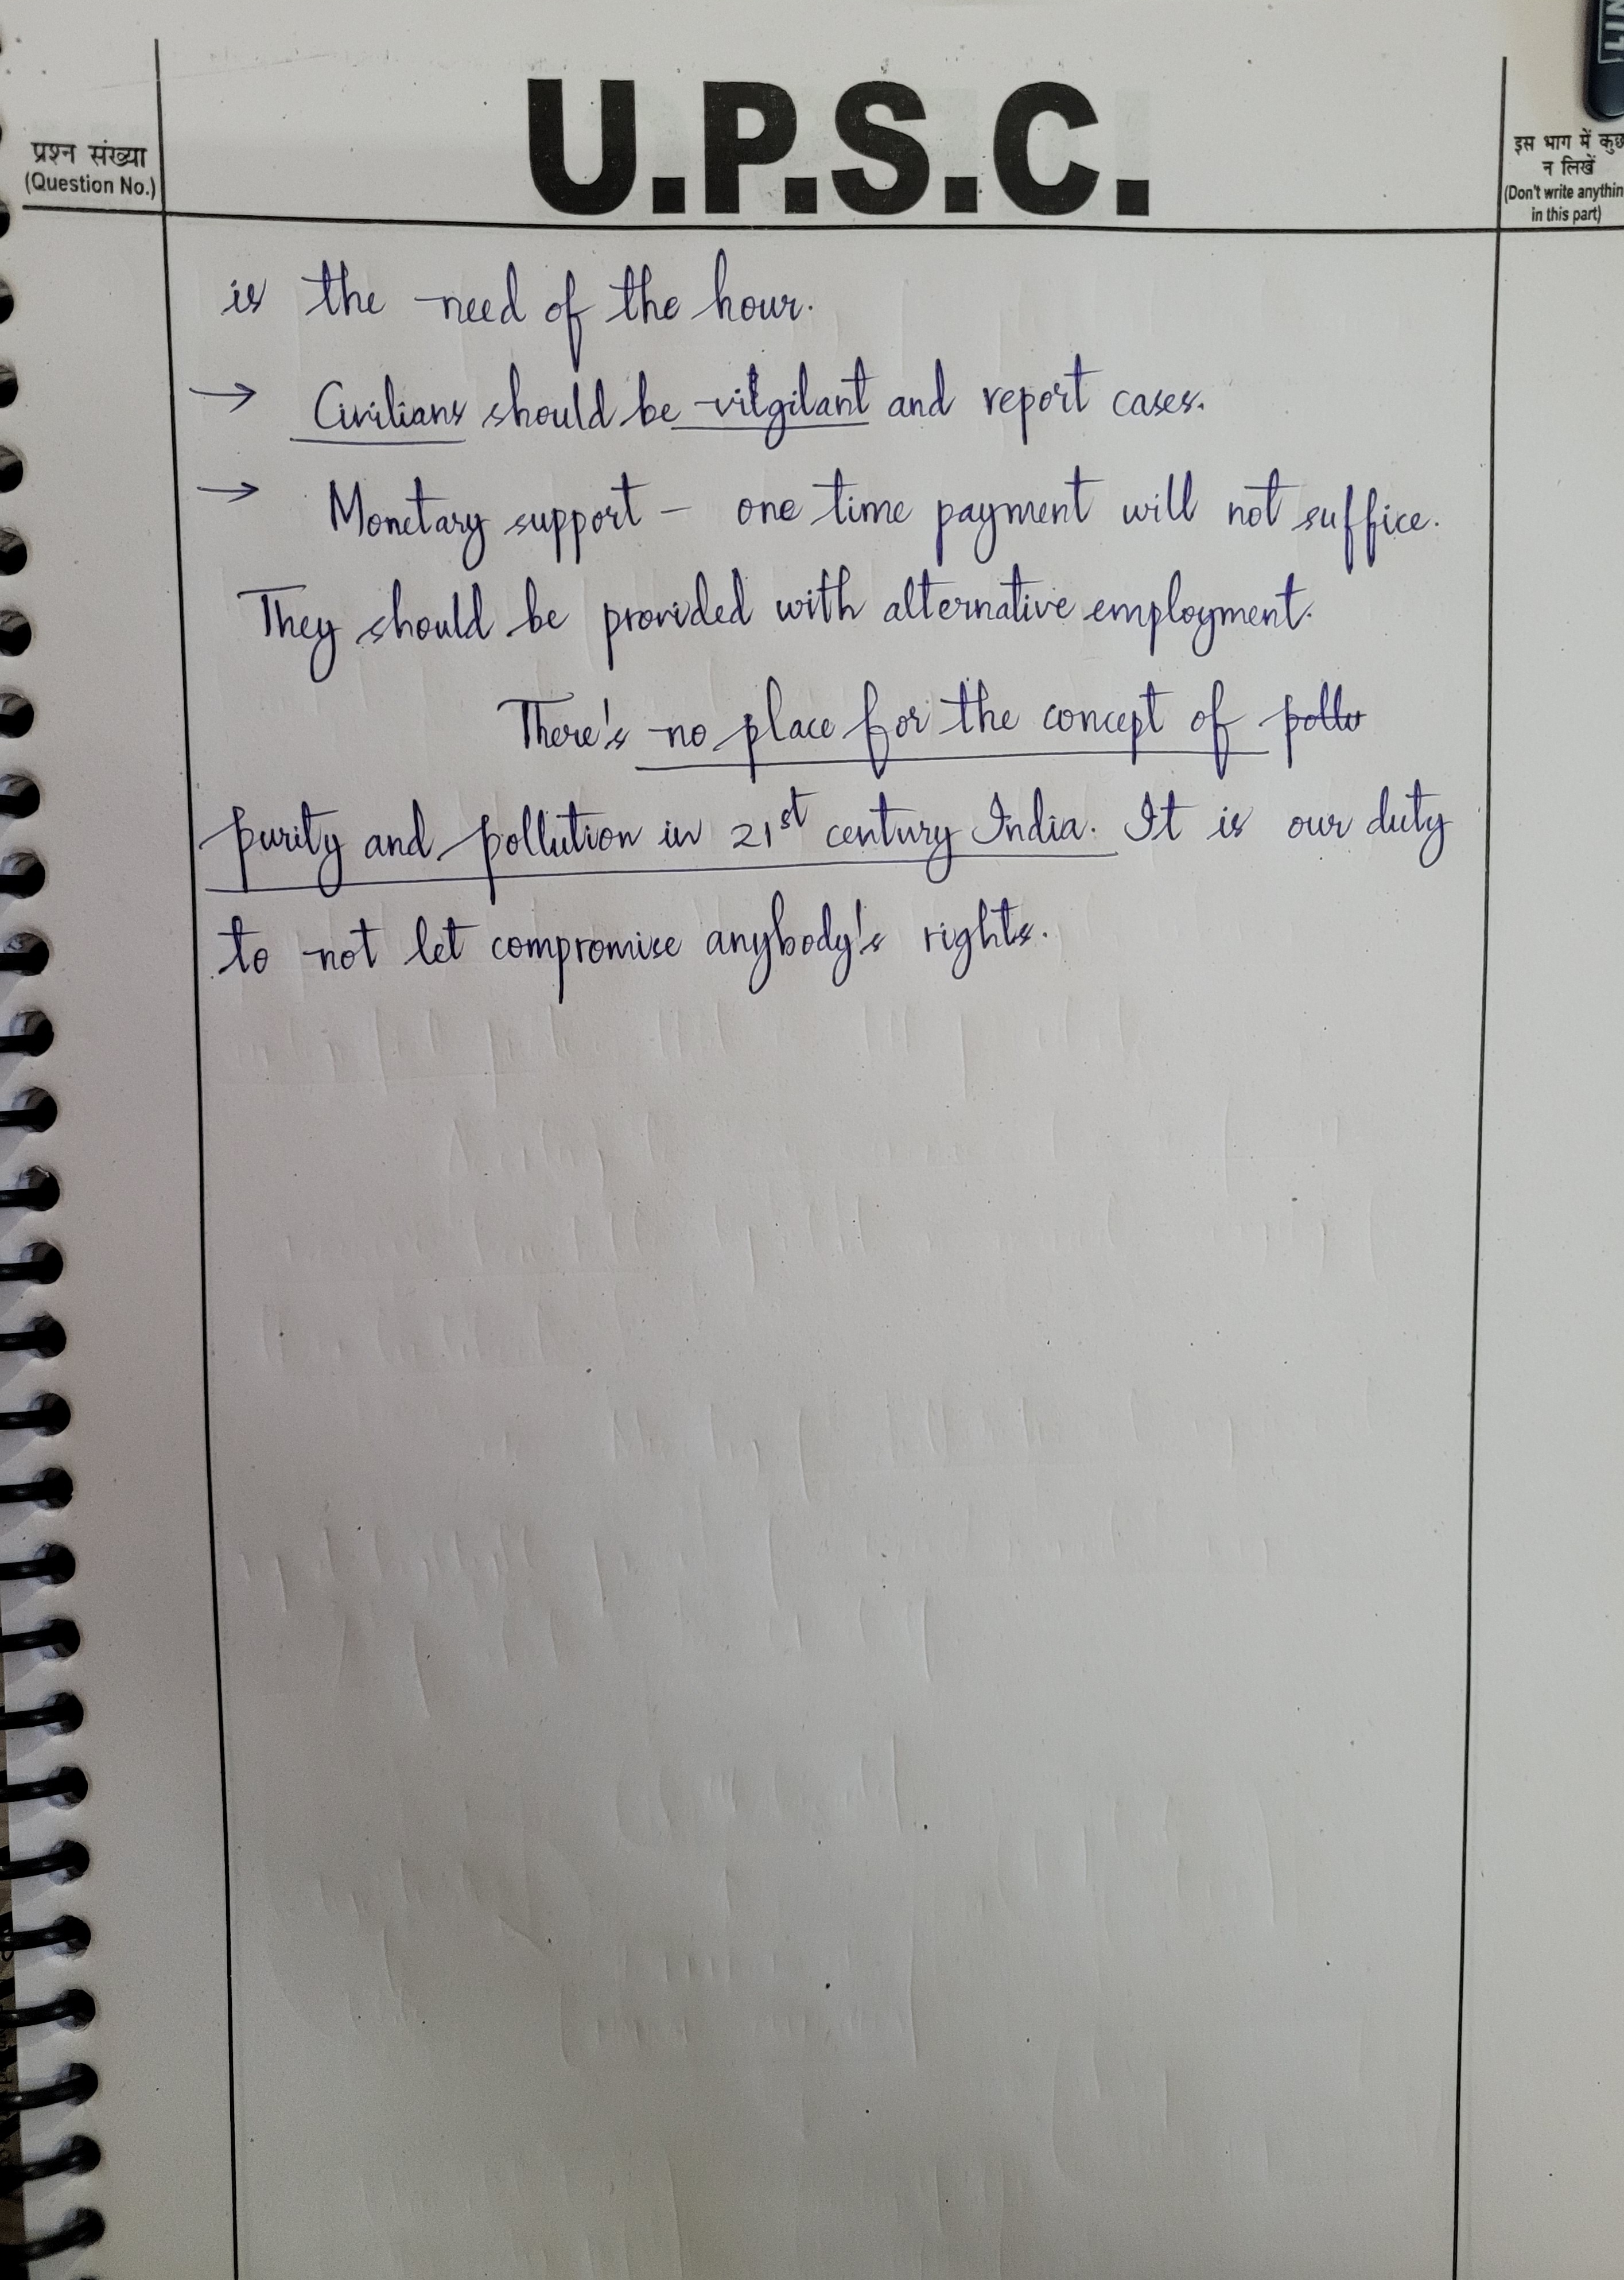 U.P.S.C.
प्रश्न संख्या
(Question No.)
इस भाग में कुछ
न लिखें
(Don't write anythin
in this part)
is the need of the hour.
→ Civilians should be vilgilant and report cases.
→ Monetary support - one time payment will not suffice.
They should be provided with alternative employment.
There's no place for the concept of pollu
purity and pollution in 21st century India. It is our duty
to not let compromise anybody's rights.